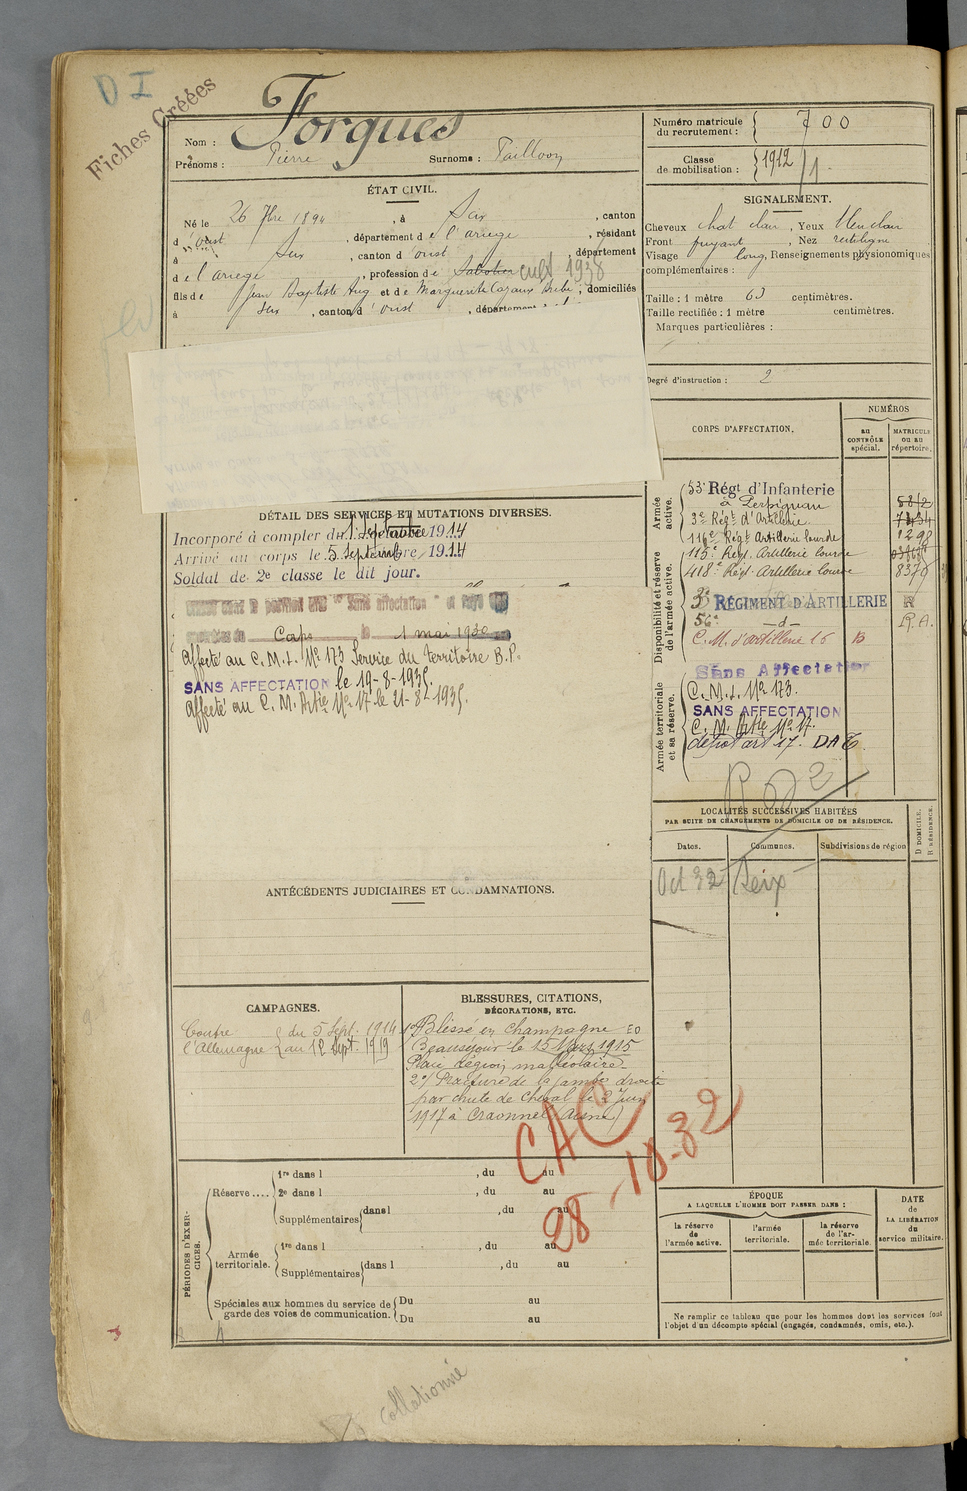 D I
Fiches Créées
Nom : Forgues
Prénoms : Pierre Surnoms : Taillou
ÉTAT CIVIL.
Né le 26 7bre 1894, à Seix, canton
d'oust, département de l'ariege, résidant
à Seix, canton d'oust, département
de l'ariege, profession de Sabotier cult 1938
fils de Jean Baptiste Aug et de Marguerite Cazaux, domiciliés
à Seix, canton d'oust, département
DÉTAIL DES SERVICES ET MUTATIONS DIVERSES.
Incorporé à compter du 1 Septembre 1914
Arrivé au corps le 5 Septembre 1914
Soldat de 2e classe le dit jour.
Classé dans la position dite "Sans affectation"
le 1 mai 1930
Affecté au C.M.I. No 173 Service du Territoire B.P.
SANS AFFECTATION le 19-8-1935.
Affecté au C.M. Artie No 17 le 21-8-1935.
ANTÉCÉDENTS JUDICIAIRES ET CONDAMNATIONS.
CAMPAGNES.
Contre l'Allemagne { du 5 Sept. 1914
au 12 Sept. 1919
BLESSURES, CITATIONS,
DÉCORATIONS, ETC.
1° Blessé en Champagne EO
Beauséjour le 15 Mars 1915
Plaie région malléolaire
2°/ Fracture de la jambe droite
par chute de cheval le 2 Juin
1917 à Craonnel (Aisne)
CAC
28-10-32
PÉRIODES D'EXERCICES.
Réserve....
1re dans l , du au
2e dans l , du au
Supplémentaires dans l , du au
Armée territoriale.
1re dans l , du au
Supplémentaires dans l , du au
Spéciales aux hommes du service de
garde des voies de communication.
Du au
Du au
collationné
Numéro matricule
du recrutement : 700
Classe
de mobilisation : 1912 /1
SIGNALEMENT.
Cheveux chat clair, Yeux bleu clair
Front fuyant, Nez rectiligne
Visage long, Renseignements physionomiques
complémentaires :
Taille : 1 mètre 63 centimètres.
Taille rectifiée : 1 mètre centimètres.
Marques particulières :
Degré d'instruction : 2
CORPS D'AFFECTATION.
NUMÉROS
AU CONTRÔLE spécial.
MATRICULE ou au répertoire.
Armée active.
53e Régt d'Infanterie
à Perpignan 5812
3e Régt d'Artillerie 7434
116e Régt Artillerie lourde 1298
Disponibilité et réserve de l'armée active.
115e Régt Artillerie lourde
418e Régt Artillerie lourde 8370
3e RÉGIMENT D'ARTILLERIE R
56e -d- R.A.
C.M. d'artillerie 16
Sans Affectation
Armée territoriale et sa réserve.
C.M.I. No 173.
SANS AFFECTATION
C.M. Artie No 17.
dépot art 17. DAT
LOCALITÉS SUCCESSIVES HABITÉES
PAR SUITE DE CHANGEMENTS DE DOMICILE OU DE RÉSIDENCE.
Dates. Communes. Subdivisions de région
D DOMICILE.
R RÉSIDENCE.
Oct 32 Seix
ÉPOQUE
A LAQUELLE L'HOMME DOIT PASSER DANS :
la réserve de l'armée active.
l'armée territoriale.
la réserve de l'armée territoriale.
DATE
de
LA LIBÉRATION
du
service militaire.
Ne remplir ce tableau que pour les hommes dont les services font
l'objet d'un décompte spécial (engagés, condamnés, omis, etc.).